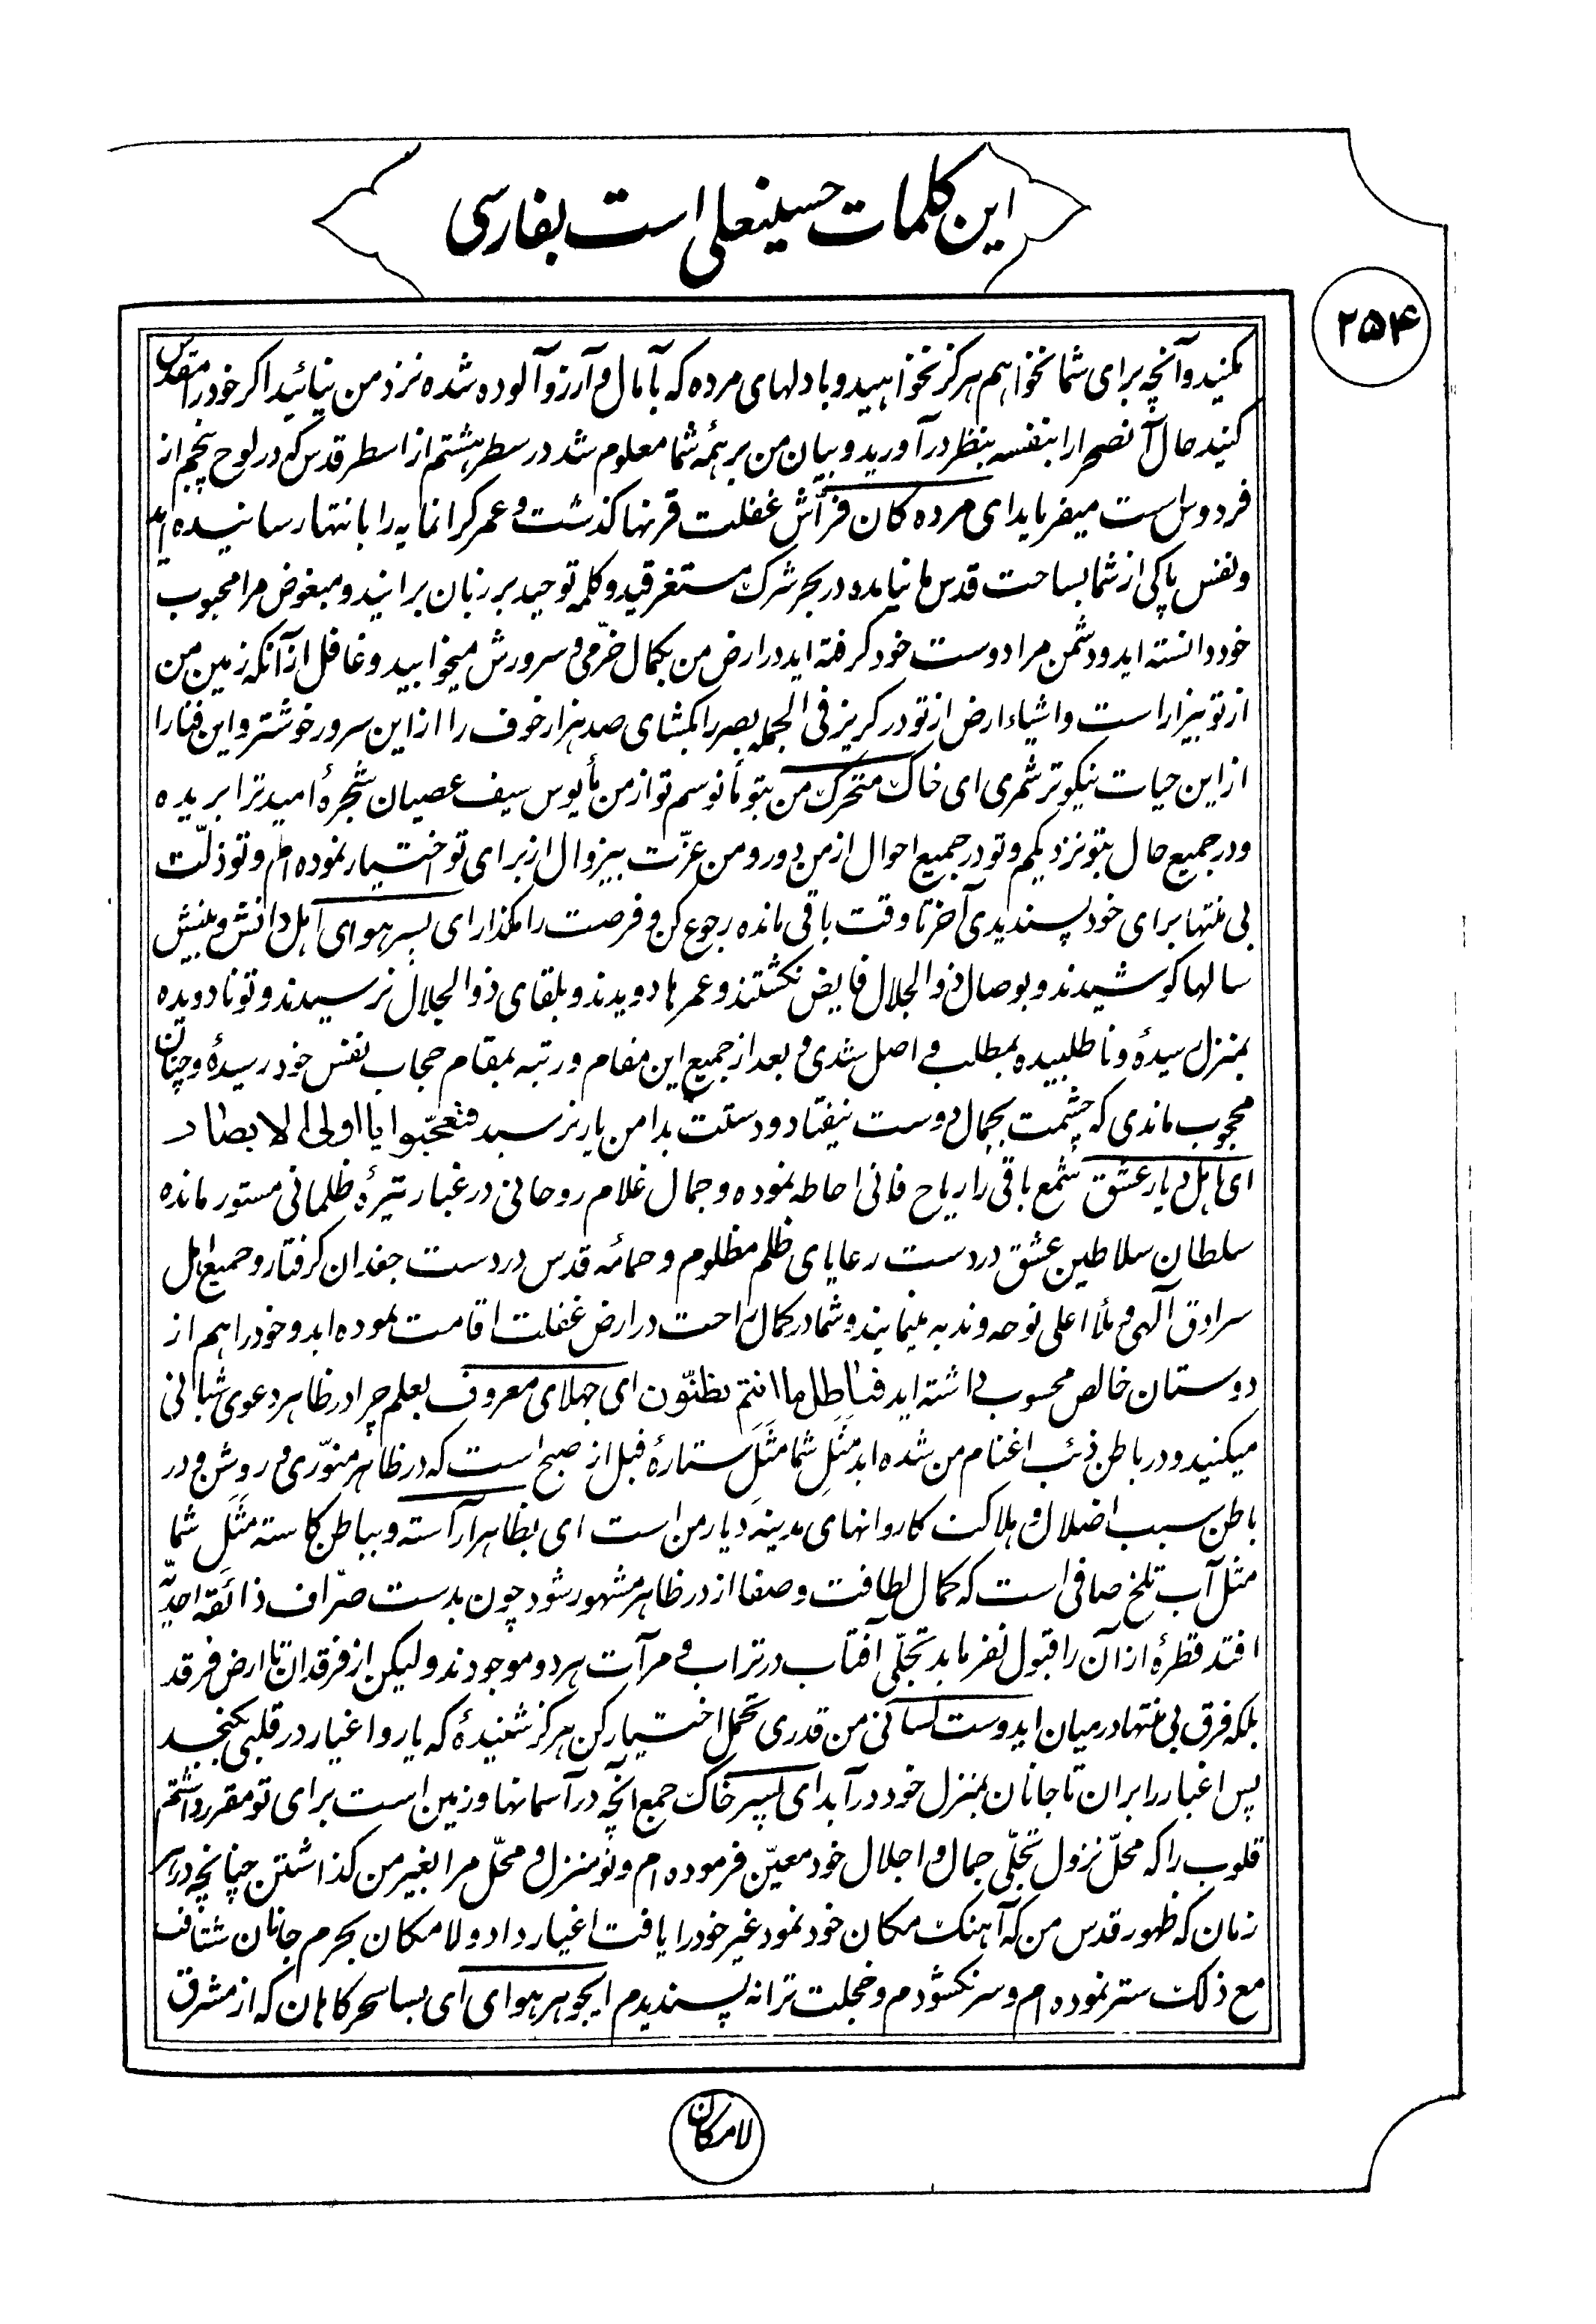 این کلمات حسینعلی است بفارسی
۲۵۴
مکنید و آنچه برای شما نخواهم هرگز نخواهید و با دلهای مرده که بآمال و آرزو آلوده شده نزد من نیائید اکر خود را مقدس
کنید حال آنصحرا را بنفسه بنظر درآورید و بیان من بر همهٔ شما معلوم شد در سطر هشتم از اسطر قدس که در لوح پنجم از
فردوس است میفرماید ای مرده کان فراش غفلت قرنها کذشت و عمر کرانمایه را بانتها رسانیده اید
و نفس پاکی از شما بساحت قدس ما نیامده در بحر شرک مستغرقید و کلمه توحید بر زبان برانید و مبغوض مرا محبوب
خود دانسته اید و دشمن مرا دوست خود کرفته اید در ارض من بکمال خرّمی و سرورش میخوابید و غافل از آنکه زمین من
از تو بیزار است و اشیاء ارض از تو در کریز فی الجمله بصر را بکشای صد هزار خوف را از این سرور خوشتر و این فنا را
از این حیات نیکوتر شمری ای خاک متحرک من بتو مأنوسم تو از من مأیوس سیف عصیان شجرهٔ امید ترا بریده
و در جمیع حال بتو نزدیکم و تو در جمیع احوال از من دور و من عزّت بیزوال از برای تو اختیار نموده ام و تو ذلّت
بی منتها برای خود پسندیدی آخر تا وقت باقی مانده رجوع کن و فرصت را مکذار ای پسر هوای اهل دانش و بینش
سالها کوشیدند و بوصال ذو الجلال فایض نکشتند و عمرها دویدند و بلقای ذوالجلال نرسیدند و تو نادویده
بمنزل رسیدهٔ و ناطلبیده بمطلب واصل شدی و بعد از جمیع این مقام و رتبه بمقام حجاب نفس خود رسیدهٔ و چنان
محجوب ماندی که چشمت بجمال دوست نیفتاد و دستت بدامن یار نرسید فتعجّبوا یا اولی الابصار
ای اهل دیار عشق شمع باقی را ریاح فانی احاطه نموده و جمال غلام روحانی در غبار تیرهٔ ظلمانی مستور مانده
سلطان سلاطین عشق در دست رعایای ظلم مظلوم و حمامه قدس در دست جغدان کرفتار و جمیع اهل
سرادق آلهی و ملأ اعلی نوحه و ندبه مینمایند و شما در کمال راحت در ارض غفلت اقامت نموده اید و خود را هم از
دوستان خالص محسوب داشته اید فباطل ما انتم تظنّون ای جهلای معروف بعلم چرا در ظاهر دعوی شبانی
میکنید و در باطن ذئب اغنام من شده اید مَثَلِ شما مَثَلِ ستارهٔ قبل از صبح است که در ظاهر منوّری و روشن و در
باطن سبب اضلال و هلاکت کاروانهای مدینه و دیار من است ای بظاهر آراسته و بباطن کاسته مَثَلِ شما
مثل آب تلخ صافی است که کمال لطافت و صفا از در ظاهر مشهور شود چون بدست صرّاف ذائقه احدیّه
افتد قطرهٔ از آن را قبول نفرماید تجلّی آفتاب در تراب و مرآت هر دو موجودند و لیکن از فرقدان تا ارض فرقد
بلکه فرق بی منتها در میان ایدوست لسانی من قدری تحمل اختیار کن هرگز شنیدهٔ که یار و اغیار در قلبی بکنجد
پس اغیار را بران تا جانان بمنزل خود درآید ای پسر خاک جمع آنچه در آسمانها و زمین است برای تو مقرر داشتم
قلوب را که محلّ نزول تجلّی جمال و اجلال خود معیّن فرموده ام و تو منزل و محلّ مرا بغیر من کذاشتن چنانچه در هر
زمان که ظهور قدس من که آهنک مکان خود نمود غیر خود را یافت اغیار داد و لامکان بحرم جانان شتافت
مع ذلک ستر نموده ام و سر نکشودم و خجلت ترا نه پسندیدم ایجوهر هوای ای بسا سحرکاهان که از مشرق
لامکان